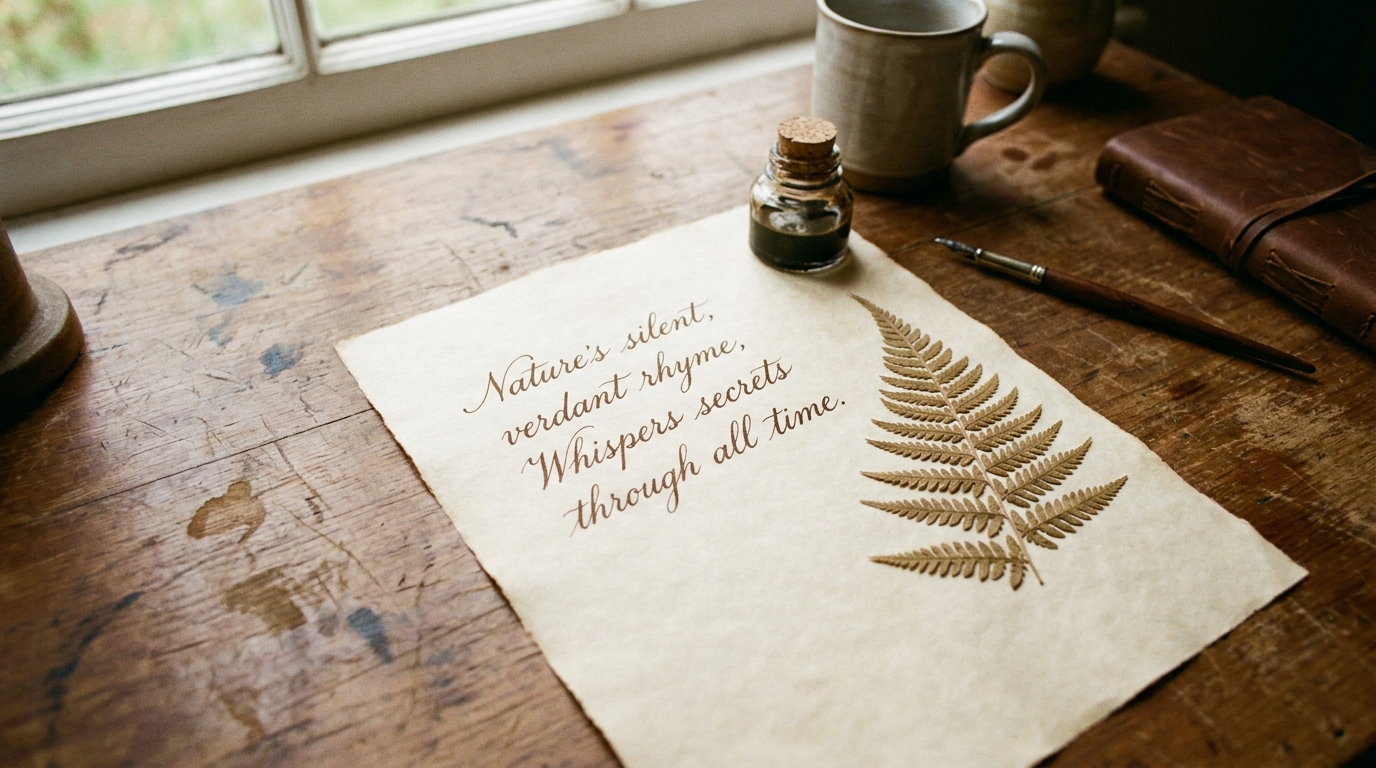 Nature's silent,
verdant rhyme,
Whispers secrets
through all time.